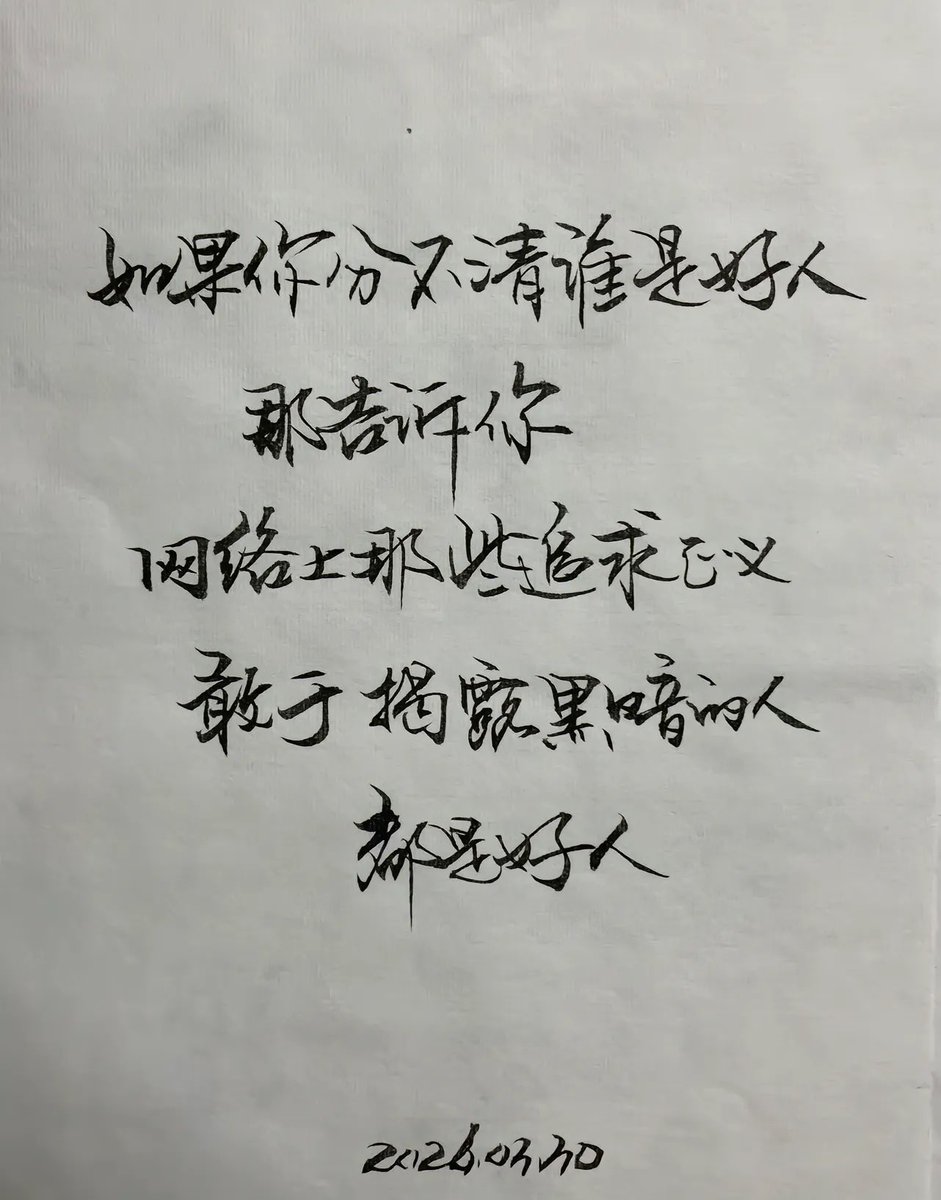 如果你分不清谁是好人
那告诉你
网络上那些追求正义
敢于揭露黑暗的人
都是好人
2026.03.30